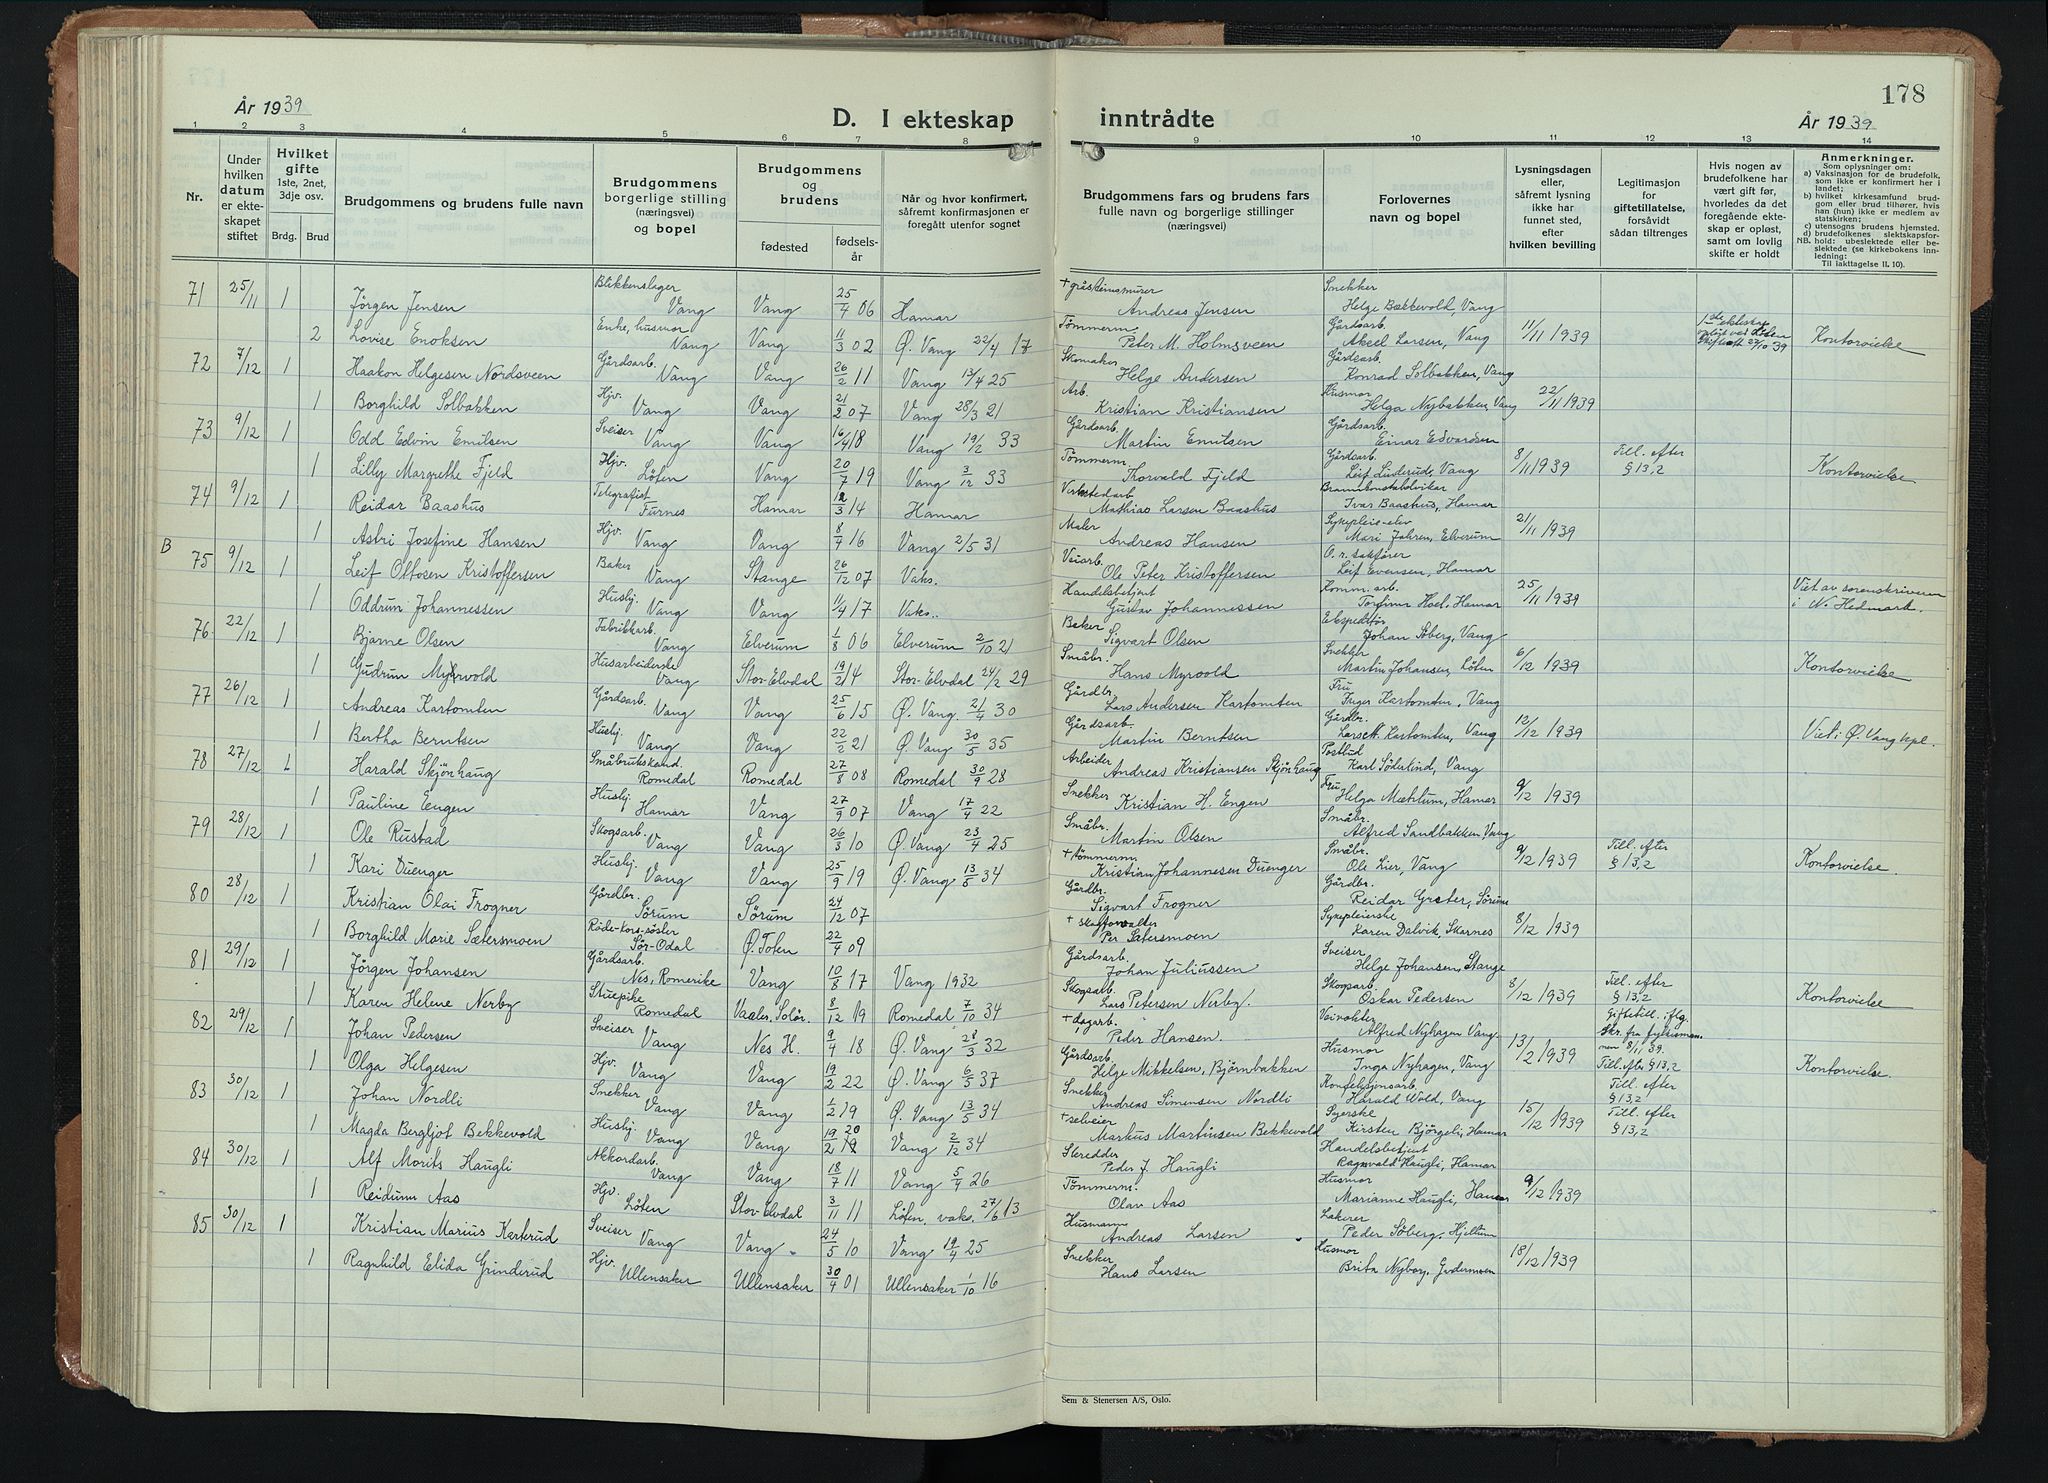 178
År 1939
D. I ekteskap inntrådte
År 1939
1 2 3 4 5 6 7 8 9 10 11 12 13 14
Nr.
Under hvilken datum er ekteskapet stiftet
Hvilket gifte
1ste, 2net, 3dje osv.
Brdg. Brud
Brudgommens og brudens fulle navn
Brudgommens borgerlige stilling (næringsvei) og bopel
Brudgommens og brudens
fødested
fødselsår
Når og hvor konfirmert, såfremt konfirmasjonen er foregått utenfor sognet
Brudgommens fars og brudens fars fulle navn og borgerlige stillinger (næringsvei)
Forlovernes navn og bopel
Lysningsdagen eller, såfremt lysning ikke har funnet sted, efter hvilken bevilling
Legitimasjon for giftetillatelse, forsåvidt sådan tiltrenges
Hvis nogen av brudefolkene har vært gift før, hvorledes da det foregående ekteskap er opløst, samt om lovlig skifte er holdt
Anmerkninger.
Som oplysninger om:
a) Vaksinasjon for de brudefolk, som ikke er konfirmert her i landet;
b) hvilket kirkesamfund brudgom eller brud tilhører, hvis han (hun) ikke er medlem av statskirken;
c) utensogns brudens hjemsted.
d) brudefolkenes slektskapsforhold: ubeslektede eller beslektede (se kirkebokens innledning:
NB.
Til iakttagelse II. 10).
71 25/11 1 Jørgen Jensen Blikkenslager Vang Vang 25/4 06 Hamar + gråsteinsmurer Andreas Jensen Snekker Helge Bækkevold, Vang
2 Lovise Enoksen Enke, husmor Vang Vang 11/3 02 Ø. Vang 22/4 17 Tømmerm. Peter M. Holmsveen Gårdsarb. Aksel Larsen, Vang 11/11 1939 1ste ekteskap Kontorvielse
72 7/12 1 Haakon Helgesen Nordsveen Gårdsarb. Vang Vang 26/2 11 Vang 13/4 25 Skomaker Helge Andersen Gårdsarb. Konrad Solbakken, Vang
1 Borghild Solbakken Hjv. Vang Vang 21/2 07 Vang 28/3 21 Arb. Kristian Kristiansen Husmor Helga Nybakken, Vang 22/11 1939
73 9/12 1 Odd Edvin Emilsen Sveiser Vang Vang 16/4 18 Vang 19/2 33 Gårdsarb. Martin Emilsen Gårdsarb. Einar Edvardsen
1 Lilly Margrethe Fjeld Hjv. Løten Vang 20/7 19 Vang 3/12 33 Tømmerm. Thorvald Fjeld Gårdsarb. Leif Linderud, Vang 8/11 1939 Till. efter § 13,2 Kontorvielse
74 9/12 1 Reidar Baashus Telegrafist Furnes Hamar 12/3 14 Hamar Verkstedarb. Mathias Larsen Baashus Ivar Baashus, Hamar
1 Astri Josefine Hansen Hjv. Vang Vang 8/4 16 Vang 2/5 31 Maler Andreas Hansen Sykepleie-elev Mari Jahren, Elverum 21/11 1939
B 75 9/12 1 Leif Ottosen Kristoffersen Baker Vang Stange 26/12 07 Vaks. Veiarb. Ole Peter Kristoffersen O.r. sakfører Leif Evensen, Hamar
1 Oddrun Johannessen Husbj. Vang Vang 11/4 17 Vaks. Handelsbetjent Gustav Johannessen Komm. arb. Torfinn Hoel, Hamar 25/11 1939 Viet av sorenskriveren i N. Hedmark.
76 22/12 1 Bjarne Olsen Fabrikkarb. Vang Elverum 1/8 06 Elverum 2/10 21 Baker Sigvart Olsen Ekspeditør Johan Søberg, Vang
1 Gudrun Myrvold Husarbeiderske Vang Stor-Elvdal 19/2 14 Stor-Elvdal 24/2 29 Småbr. Hans Myrvold Snekker Martin Johansen, Løten 6/12 1939 Kontorvielse
77 26/12 1 Andreas Kartomten Gårdsarb. Vang Vang 25/6 15 Ø. Vang 21/4 30 Gårdbr. Lars Andersen Kartomten Fru Inger Kartomten, Vang
1 Bertha Berntsen Husbj. Vang Vang 22/2 21 Ø. Vang 30/5 35 Gårdsarb. Martin Berntsen Gårdbr. Lars Kartomten, Vang 12/12 1939 Viet i Ø. Vang kpl.
78 27/12 1 Harald Skjønhaug Småbrukskand. Romedal Romedal 27/8 08 Romedal 30/9 28 Arbeider Andreas Kristiansen Skjønhaug Postbud Karl Søderlind, Vang
1 Pauline Engen Husbj. Hamar Vang 27/9 07 Vang 17/4 22 Snekker Kristian H. Engen Fru Helga Mæhlum, Hamar 9/12 1939
79 28/12 1 Ole Rustad Skogsarb. Vang Vang 26/3 10 Ø. Vang 23/4 25 Småbr. Martin Olsen Småbr. Alfred Sandbakken, Vang
1 Kari Duenger Husbj. Vang Vang 25/9 19 Ø. Vang 13/5 34 + tømmerm. Kristian Johannesen Duenger Småbr. Ole Lier, Vang 9/12 1939 Till. efter § 13,2 Kontorvielse.
80 28/12 1 Kristian Olai Frogner Gårdbr. Sørum Sørum 24/12 07 Gårdbr. Sigvart Frogner Gårdbr. Reidar Grøter, Sørum
1 Borghild Marie Sætersmoen Røde-Kors-søster Sør-Odal Ø. Toten 22/4 09 + skafforvalter Per Sætersmoen Sykepleierske Karen Dalvik, Skarnes 8/12 1939
81 29/12 1 Jørgen Johansen Gårdsarb. Nes, Romerike Vang 10/8 17 Vang 1932 Gårdsarb. Johan Juliussen Sveiser Helge Johansen, Stange
1 Karen Helene Nerby Stuepike Romedal Vaaler, Solør. 8/12 19 Romedal 7/10 34 Skogsarb. Lars Petersen Nerby. Skogsarb. Oskar Pedersen 8/12 1939 Till. efter § 13,2 Kontorvielse
82 29/12 1 Johan Pedersen Sveiser Vang Nes H. 9/4 18 Ø. Vang 28/3 32 + dagarb. Peder Hansen. Veivokter Alfred Nyhagen, Vang Giftetill. iflg. skr. fra fylkesmannen 8/11 39.
1 Olga Helgesen Hjv. Vang Vang 19/2 22 Ø. Vang 6/5 37 Gårdsarb. Helge Mikkelsen, Bjørnbakken Husmor Inga Nyhagen, Vang 13/12 1939 Till. efter § 13,2 Kontorvielse.
83 30/12 1 Johan Nordli Snekker Vang Vang 1/2 19 Ø. Vang 13/5 34 Snekker Andreas Simensen Nordli Konfeksjonsarb. Harald Wold, Vang Till. efter § 13,2
1 Magda Bergljot Bekkevold Husbj. Vang Vang 19/2 20 Vang 2/12 34 + selveier Markus Martinsen Bekkevold Syerske Kirsten Bjørgeli, Hamar 15/12 1939 Till. efter § 13,2
84 30/12 1 Alf Morits Haugli Akkordarb. Vang Vang 18/7 11 Vang 5/4 26 Skredder Peder J. Haugli Handelsbetjent Ragnvald Haugli, Hamar
1 Reidunn Aas Hjv. Løten Stor-Elvdal 3/11 11 Løten, vaks. 27/6 13 Tømmerm. Olav Aas Husmor Marianne Haugli, Hamar 9/12 1939
85 30/12 1 Kristian Marius Karterud Sveiser Vang Vang 24/5 10 Vang 19/4 25 Husmann Andreas Larsen Lakerer Peder Søberg, Hjellum
1 Ragnhild Elida Grinderud Hjv. Ullensaker Ullensaker 30/4 01 Ullensaker 1/10 16 Snekker Hans Larsen Husmor Brita Nyborg, Gardermoen 18/12 1939
Sem & Stenersen A/S, Oslo.